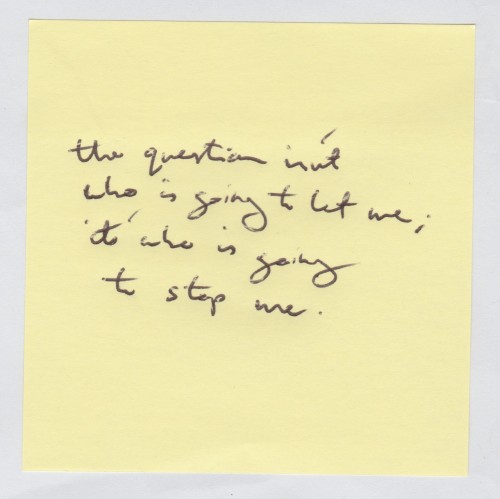 the question isn't
who is going to let me;
it's who is going
to stop me.